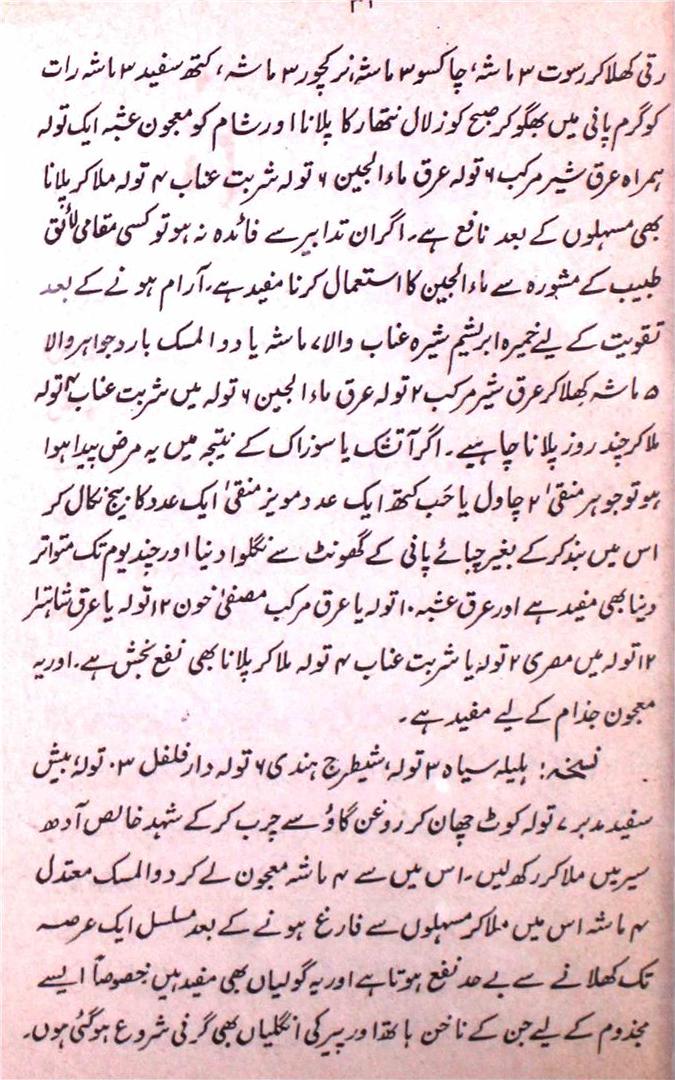 رتی کھلاکر رسوت ۳ ماشہ، چاکسو ۳ ماشہ، نرکچور ۳ ماشہ، کتھ سفید ۳ ماشہ رات
کو گرم پانی میں بھگو کر صبح کو زلال نتھار کا پلانا اور شام کو معجون عشبہ ایک تولہ
ہمراہ عرق شیر مرکب ۶ تولہ عرق ماء الجبن ۶ تولہ شربت عناب ۴ تولہ ملا کر پلانا
بھی مسہلوں کے بعد نافع ہے۔ اگر ان تدابیر سے فائدہ نہ ہو تو کسی مقامی لائق
طبیب کے مشورہ سے ماء الجبن کا استعمال کرنا مفید ہے۔ آرام ہونے کے بعد
تقویت کے لیے خمیرہ ابریشم شیرہ عناب والا ۷ ماشہ یا دوا المسک بارد جواہر والا
۵ ماشہ کھلا کر عرق شیر مرکب ۲ تولہ عرق ماء الجبن ۶ تولہ میں شربت عناب ۴ تولہ
ملا کر چند روز پلانا چاہیے۔ اگر آتشک یا سوزاک کے نتیجہ میں یہ مرض پیدا ہوا
ہو تو جوہر منقیٰ ۲ چاول یا حَب کتھ ایک عدد مویز منقیٰ ایک عدد کا بیج نکال کر
اس میں بند کر کے بغیر چبائے پانی کے گھونٹ سے نگلوا دینا اور چند یوم تک متواتر
دینا بھی مفید ہے اور عرق عشبہ ۱۰ تولہ یا عرق مرکب مصفیٰ خون ۱۲ تولہ یا عرق شاہترہ
۱۲ تولہ میں مصری ۲ تولہ یا شربت عناب ۴ تولہ ملا کر پلانا بھی نفع بخش ہے۔ اور یہ
معجون جذام کے لیے مفید ہے۔
نسخہ: ہلیلہ سیاہ ۳ تولہ، شیطرج ہندی ۶ تولہ دار فلفل ۳۰ تولہ، بیش
سفید مدبر ۷ تولہ کوٹ چھان کر روغن گاؤ سے چرب کر کے شہد خالص آدھ
سیر میں ملا کر رکھ لیں۔ اس میں سے ۴ ماشہ معجون لے کر دوا المسک معتدل
۴ ماشہ اس میں ملا کر مسہلوں سے فارغ ہونے کے بعد مسلسل ایک عرصہ
تک کھلانے سے بے حد نفع ہوتا ہے اور یہ گولیاں بھی مفید ہیں خصوصاً ایسے
مجذوم کے لیے جن کے ناخن ہاتھ اور پیر کی انگلیاں بھی گرنی شروع ہو گئی ہوں۔